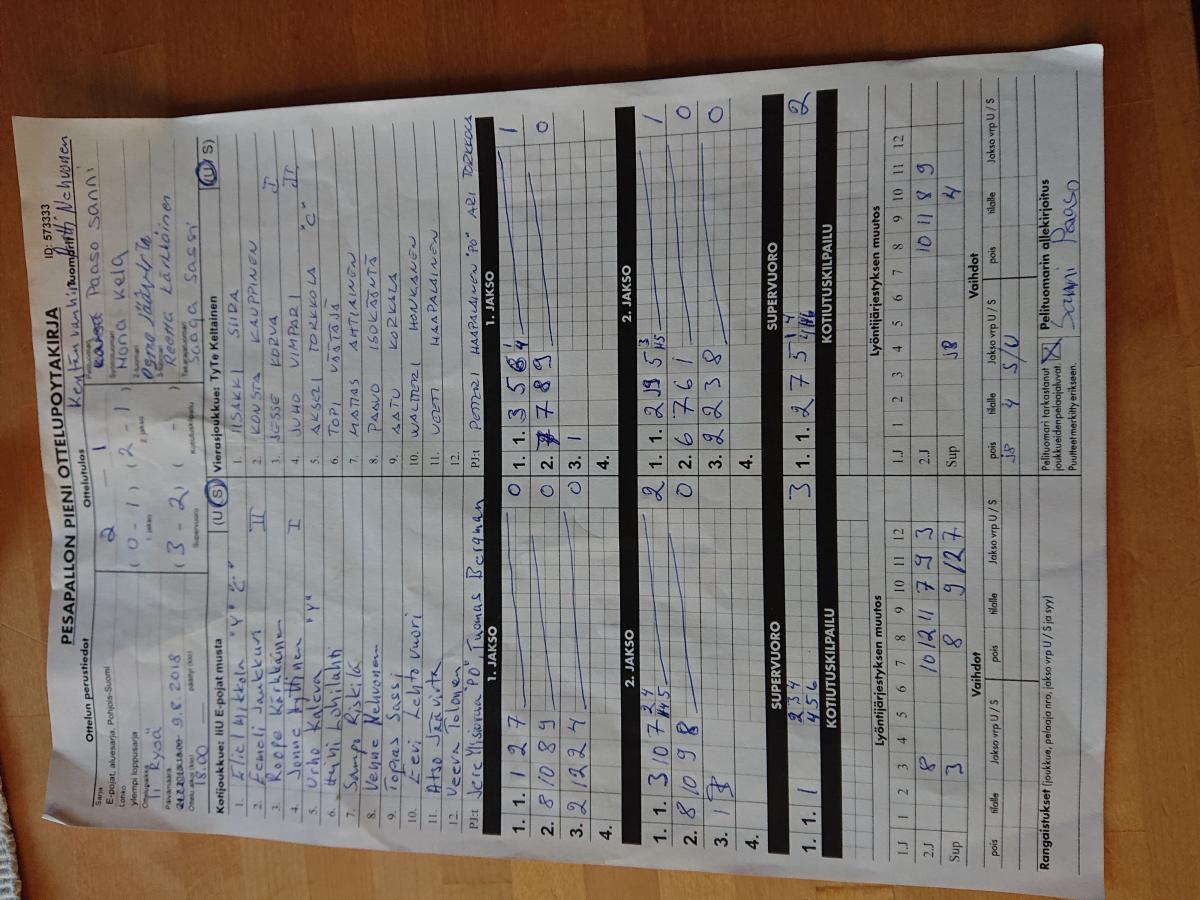 PESÄPALLON PIENI OTTELUPÖYTÄKIRJA
ID: 573333
Ottelun perustiedot
Ottelutulos
Kentän vanhin
Tuomarit
Antti Nehvonen
Sarja
E-pojat, aluesarja, Pohjois-Suomi
2 1
Paaso Sanni
Lohko
ylempi loppusarja
( 0 - 1 ) ( 2 - 1 )
1. jakso 2. jakso
Nona Kela
Ottelupaikka
Ii Rysä
Päivämäärä
9.8.2018
( 3 - 2 ) ( - )
Supervuoro Kotiutuskilpailu
Reema Länkäinen
Ottelu alkoi (klo) päättyi (klo)
18.00
Saaga Sassi
Kotijoukkue: IiU E-pojat musta (U S)
Vierasjoukkue: TyTe Keltainen (U S)
1. Eliel Mikkola "Y" "C"
2. Eemeli Jaukkuri II
3. Roope Kärkkäinen
4. Jonne Hyttinen I
5. Urho Kaleva "Y"
6. Huhi Lohilahti
7. Sampo Riskilä
8. Verne Nehvonen
9. Topias Sassi
10. Eevi Lehtovuori
11. Atso Jäävirta
12. Veera Tolonen
PJ:t Jere Ylisirnua "PO" Tuomas Bergman
1. IISAKKI SIIRA
2. KONSTA KAUPPINEN
3. JESSE KORVA I
4. JUHO VIMPARI II
5. AKSELI TORKKOLA "C"
6. TOPI VÄÄTÄJÄ
7. MATIAS AHTIAINEN
8. PAAVO ISOKÄÄNTÄ
9. AATU KORKALA
10. WALTTERI HONKANEN
11. VEETI HAAPALAINEN
12.
PJ:t PETTERI HAAPALAINEN "PO" ARI TORKKOLA
1. JAKSO 1. JAKSO
1. 1. 1 2 7 0
2. 8 10 8 9 0
3. 2 12 2 4 0
4.
1. 1. 3 5 6 1
2. 7 8 9 0
3. 1
4.
2. JAKSO 2. JAKSO
1. 1. 3 10 7 2
2. 8 10 9 8 0
3. 1
4.
1. 1. 2 5 1
2. 6 7 6 1 0
3. 2 2 3 8 0
4.
SUPERVUORO SUPERVUORO
1. 1. 1 2 3 4 3
4 5 6
1. 1. 2 7 5 2
KOTIUTUSKILPAILU KOTIUTUSKILPAILU
Lyöntijärjestyksen muutos Lyöntijärjestyksen muutos
1.J 1 2 3 4 5 6 7 8 9 10 11 12
2.J 8 10 12 11 7 9 3
Sup 3 8 9 12 7
1.J 1 2 3 4 5 6 7 8 9 10 11 12
2.J 10 11 8 9
Sup J8 4
Vaihdot Vaihdot
pois tilalle Jakso vrp U / S pois tilalle Jakso vrp U / S
pois tilalle Jakso vrp U / S pois tilalle Jakso vrp U / S
J8 4 S/U
Rangaistukset (joukkue, pelaaja nro, jakso vrp U / S ja syy)
Pelituomari tarkastanut
joukkueiden pelaajaluvat.
Puutteet merkitty erikseen.
Pelituomarin allekirjoitus
Sanni Paaso